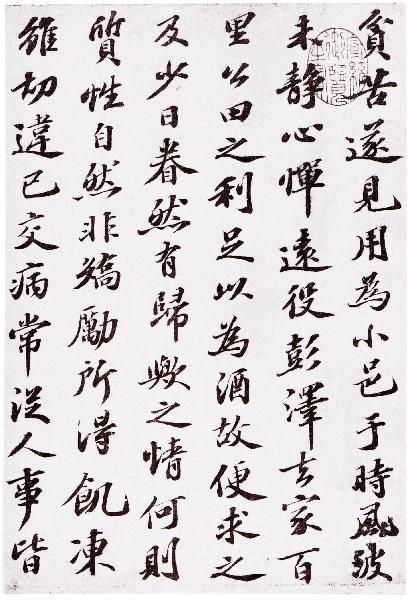 貧苦遂見用為小邑于時風波
未靜心憚遠役彭澤去家百
里公田之利足以為酒故便求之
及少日眷然有歸歟之情何則
質性自然非矯勵所得飢凍
雖切違已交病常從人事皆